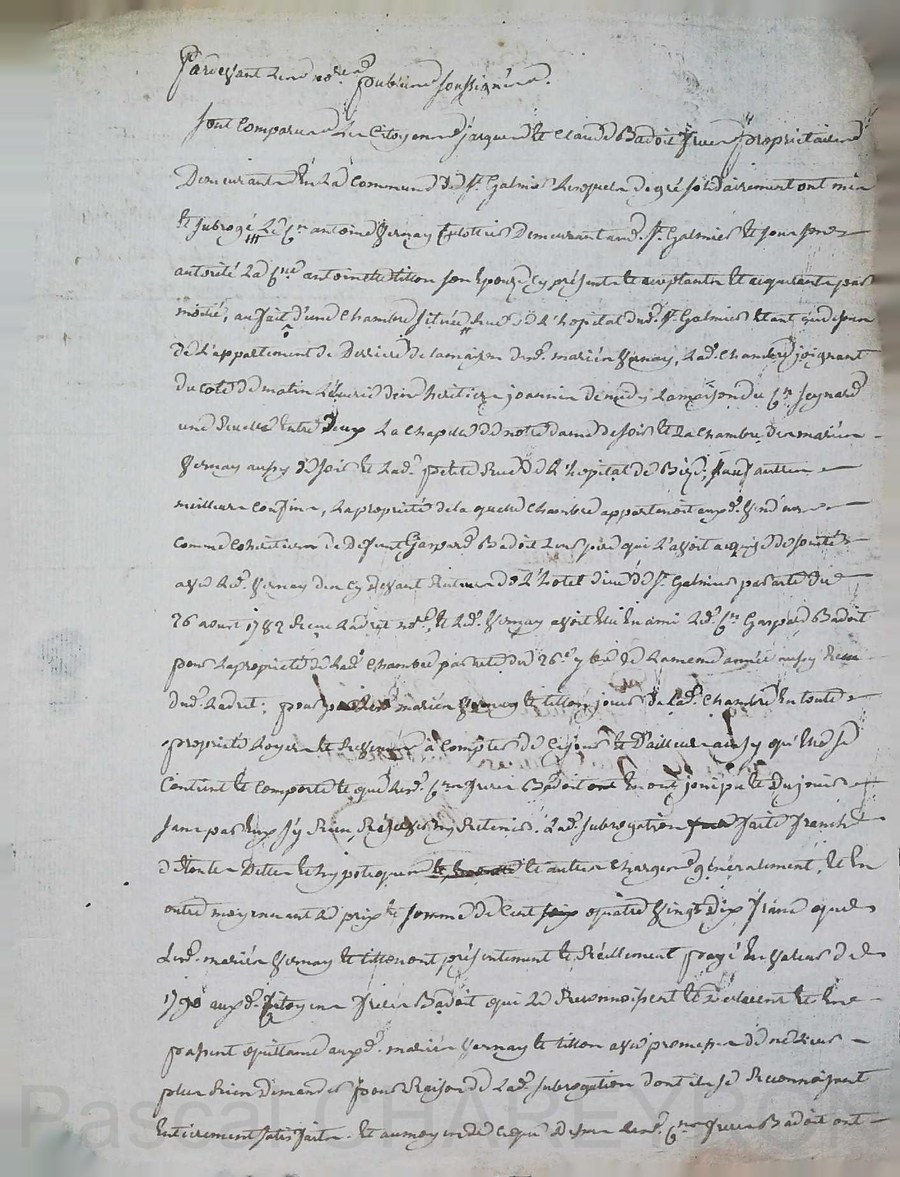 Pardevant Les no.res publics soussignés.
Sont Comparus Les Citoyens Jacques et Claude Badoit freres propriétaires
Demeurants En La Commune de St. Galmier Lesquels de gré solidairement ont mis
et subrogé Le C.en antoine Vernay Demeurant aud. St. Galmier et sous son
autorité La C.ne antoinette tillon son Epouze cy présents et acceptants et acquerants par
moitié, au fait d'une Chambre située Rue de L'hopital dud. St. Galmier
de L'appartement de Derriere de la maison dud. mariés Vernay, Lad. Chambre joignant
du coté de matin L'écurie des heritiers joannin de midy La maison du C.en Peynard
une Ruelle Entre Deux La Chapelle de notre dame de soir et La Chambre des mariés
Vernay aussy de soir et Lad. petite Rue de L'hopital de Bize, sauf autres
meilleurs confins, La propriété de la quelle Chambre appartenoit auxd. Vendeurs
comme Cohéritiers de Defunt Gaspard Badoit Leur pere qui L'avoit acquise de société
avec Led. Vernay des Cy Devant Recteurs de L'hotel Dieu de St. Galmier par acte du
26 aoust 1782 Recu Ladret no.re, et Led. Vernay avoit Elu En ami Led. C.en Gaspard Badoit
pour La propriété de Lad. Chambre par acte du 26.e de La meme année aussy Recu
dud. Ladret; pour Lesd. mariés Vernay et tillon jouir de Lad. Chambre En toute
propriété a Compter de Ce jour et D'ailleurs ainsy qu'Elle se
Contient et Comporte et que Lesd. C.ens freres Badoit ont En ont joui pu et Du jouir
sans par Eux s'y Rien Reserver ny Retenir. Lad. subrogation faite franche
de toutes Dettes et hypoteques et autres Charges generalement, et En
outre moyennant Le prix et somme de Cent quatre Vingt Dix francs que
Lesd. mariés Vernay et tillon ont présentement et Réellement payé En Valeur de
1790 auxd. Citoyens freres Badoit qui Le Reconnoissent et Declarent et En
passent quittance auxd. mariés Vernay et tillon avec promesse de ne Leur
plus Rien demander pour Raison de Lad. subrogation dont ils se Reconnoissent
Entierement satisfaits. Et au moyen de Ce que Dessus Lesd. C.ens freres Badoit ont
Pascal CHAPEYRON